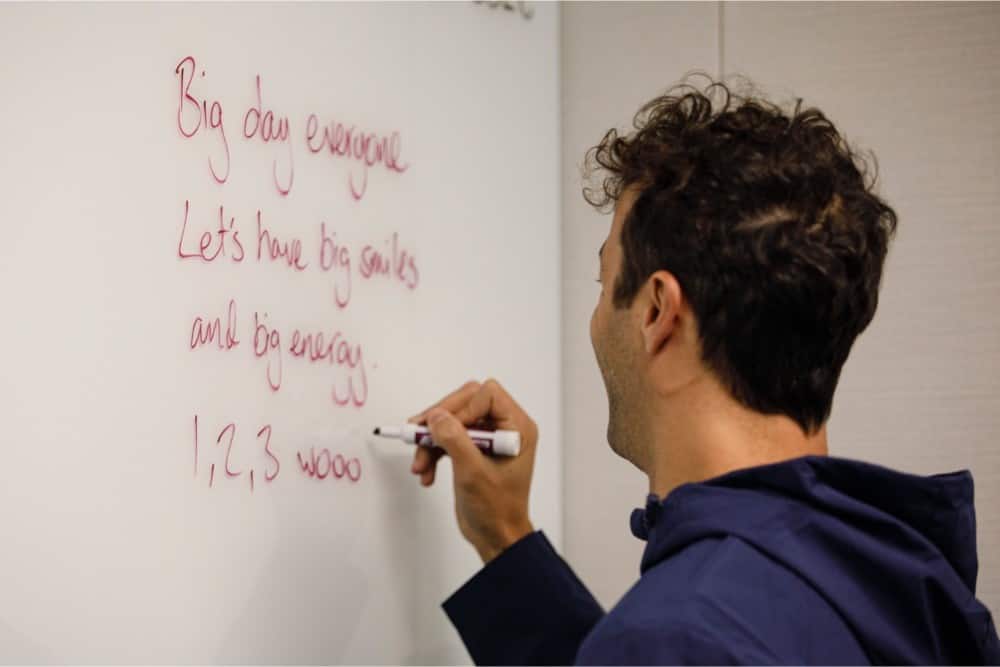 Big day everyone
Let's have big smiles
and big energy.
1, 2, 3 wooo